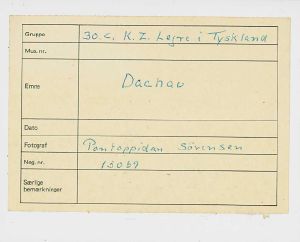 Gruppe 30.c. K.Z. Lejre i Tyskland
Mus. nr.
Emne Dachau
Dato
Fotograf Pontoppidan Sörensen
Neg. nr. 15069
Særlige
bemærkninger